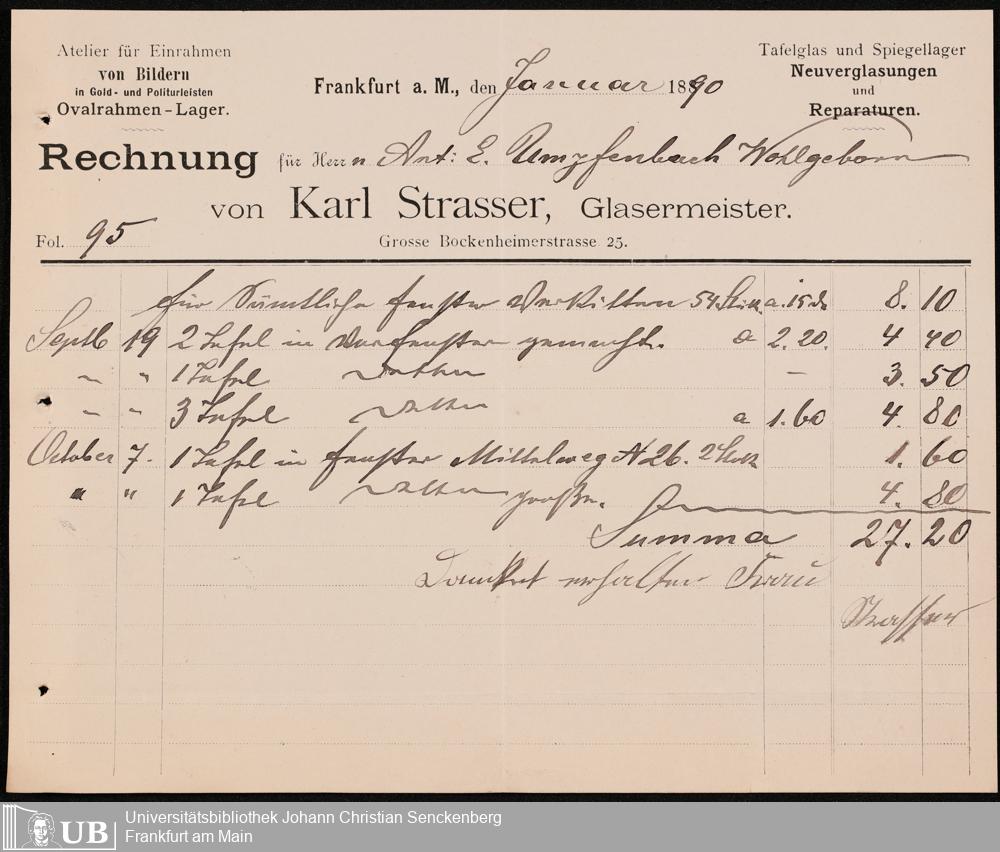 Atelier für Einrahmen
von Bildern
in Gold- und Politurleisten
Ovalrahmen-Lager.
Tafelglas und Spiegellager
Neuverglasungen
und
Reparaturen.
Frankfurt a. M., den Januar 1890
Rechnung für Herrn Ant: E. Umpfenbach Wohlgeborn
von Karl Strasser, Glasermeister.
Fol. 95 Grosse Bockenheimerstrasse 25.
für Sämtliche fenster Verkitten 54 Stück a. 15 8. 10
Septb 19 2 Tafel in Vorfenster gemacht. a 2.20. 4 40
" " 1 Tafel detto — 3. 50
" " 3 Tafel detto a 1.60 4. 80
October 7. 1 Tafel in fenster Mittelweg N 26. 2 Stock 1. 60
" " 1 Tafel detto große. 4. 80
Summa 27. 20
Dankent erhalten Frau
Strasser
Universitätsbibliothek Johann Christian Senckenberg
Frankfurt am Main
UB